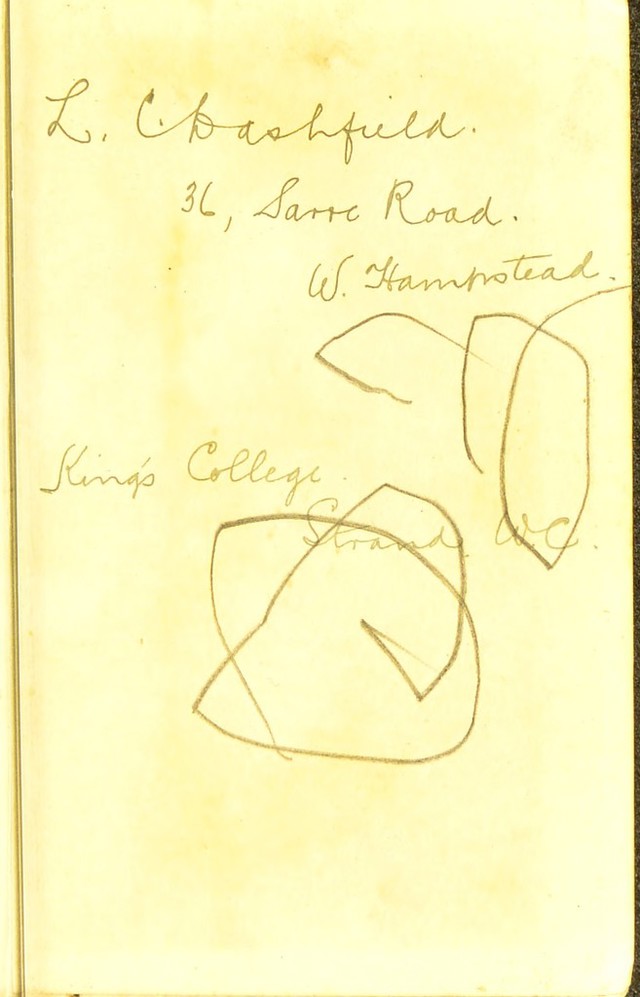 L. C. Dashfield.
36, Sarre Road.
W. Hampstead.
King's College.
Strand. W.C.